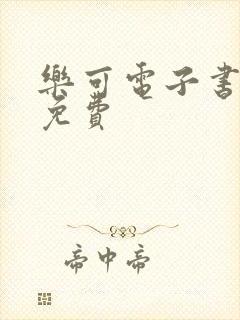 樂可電子書
免費
帝中帝